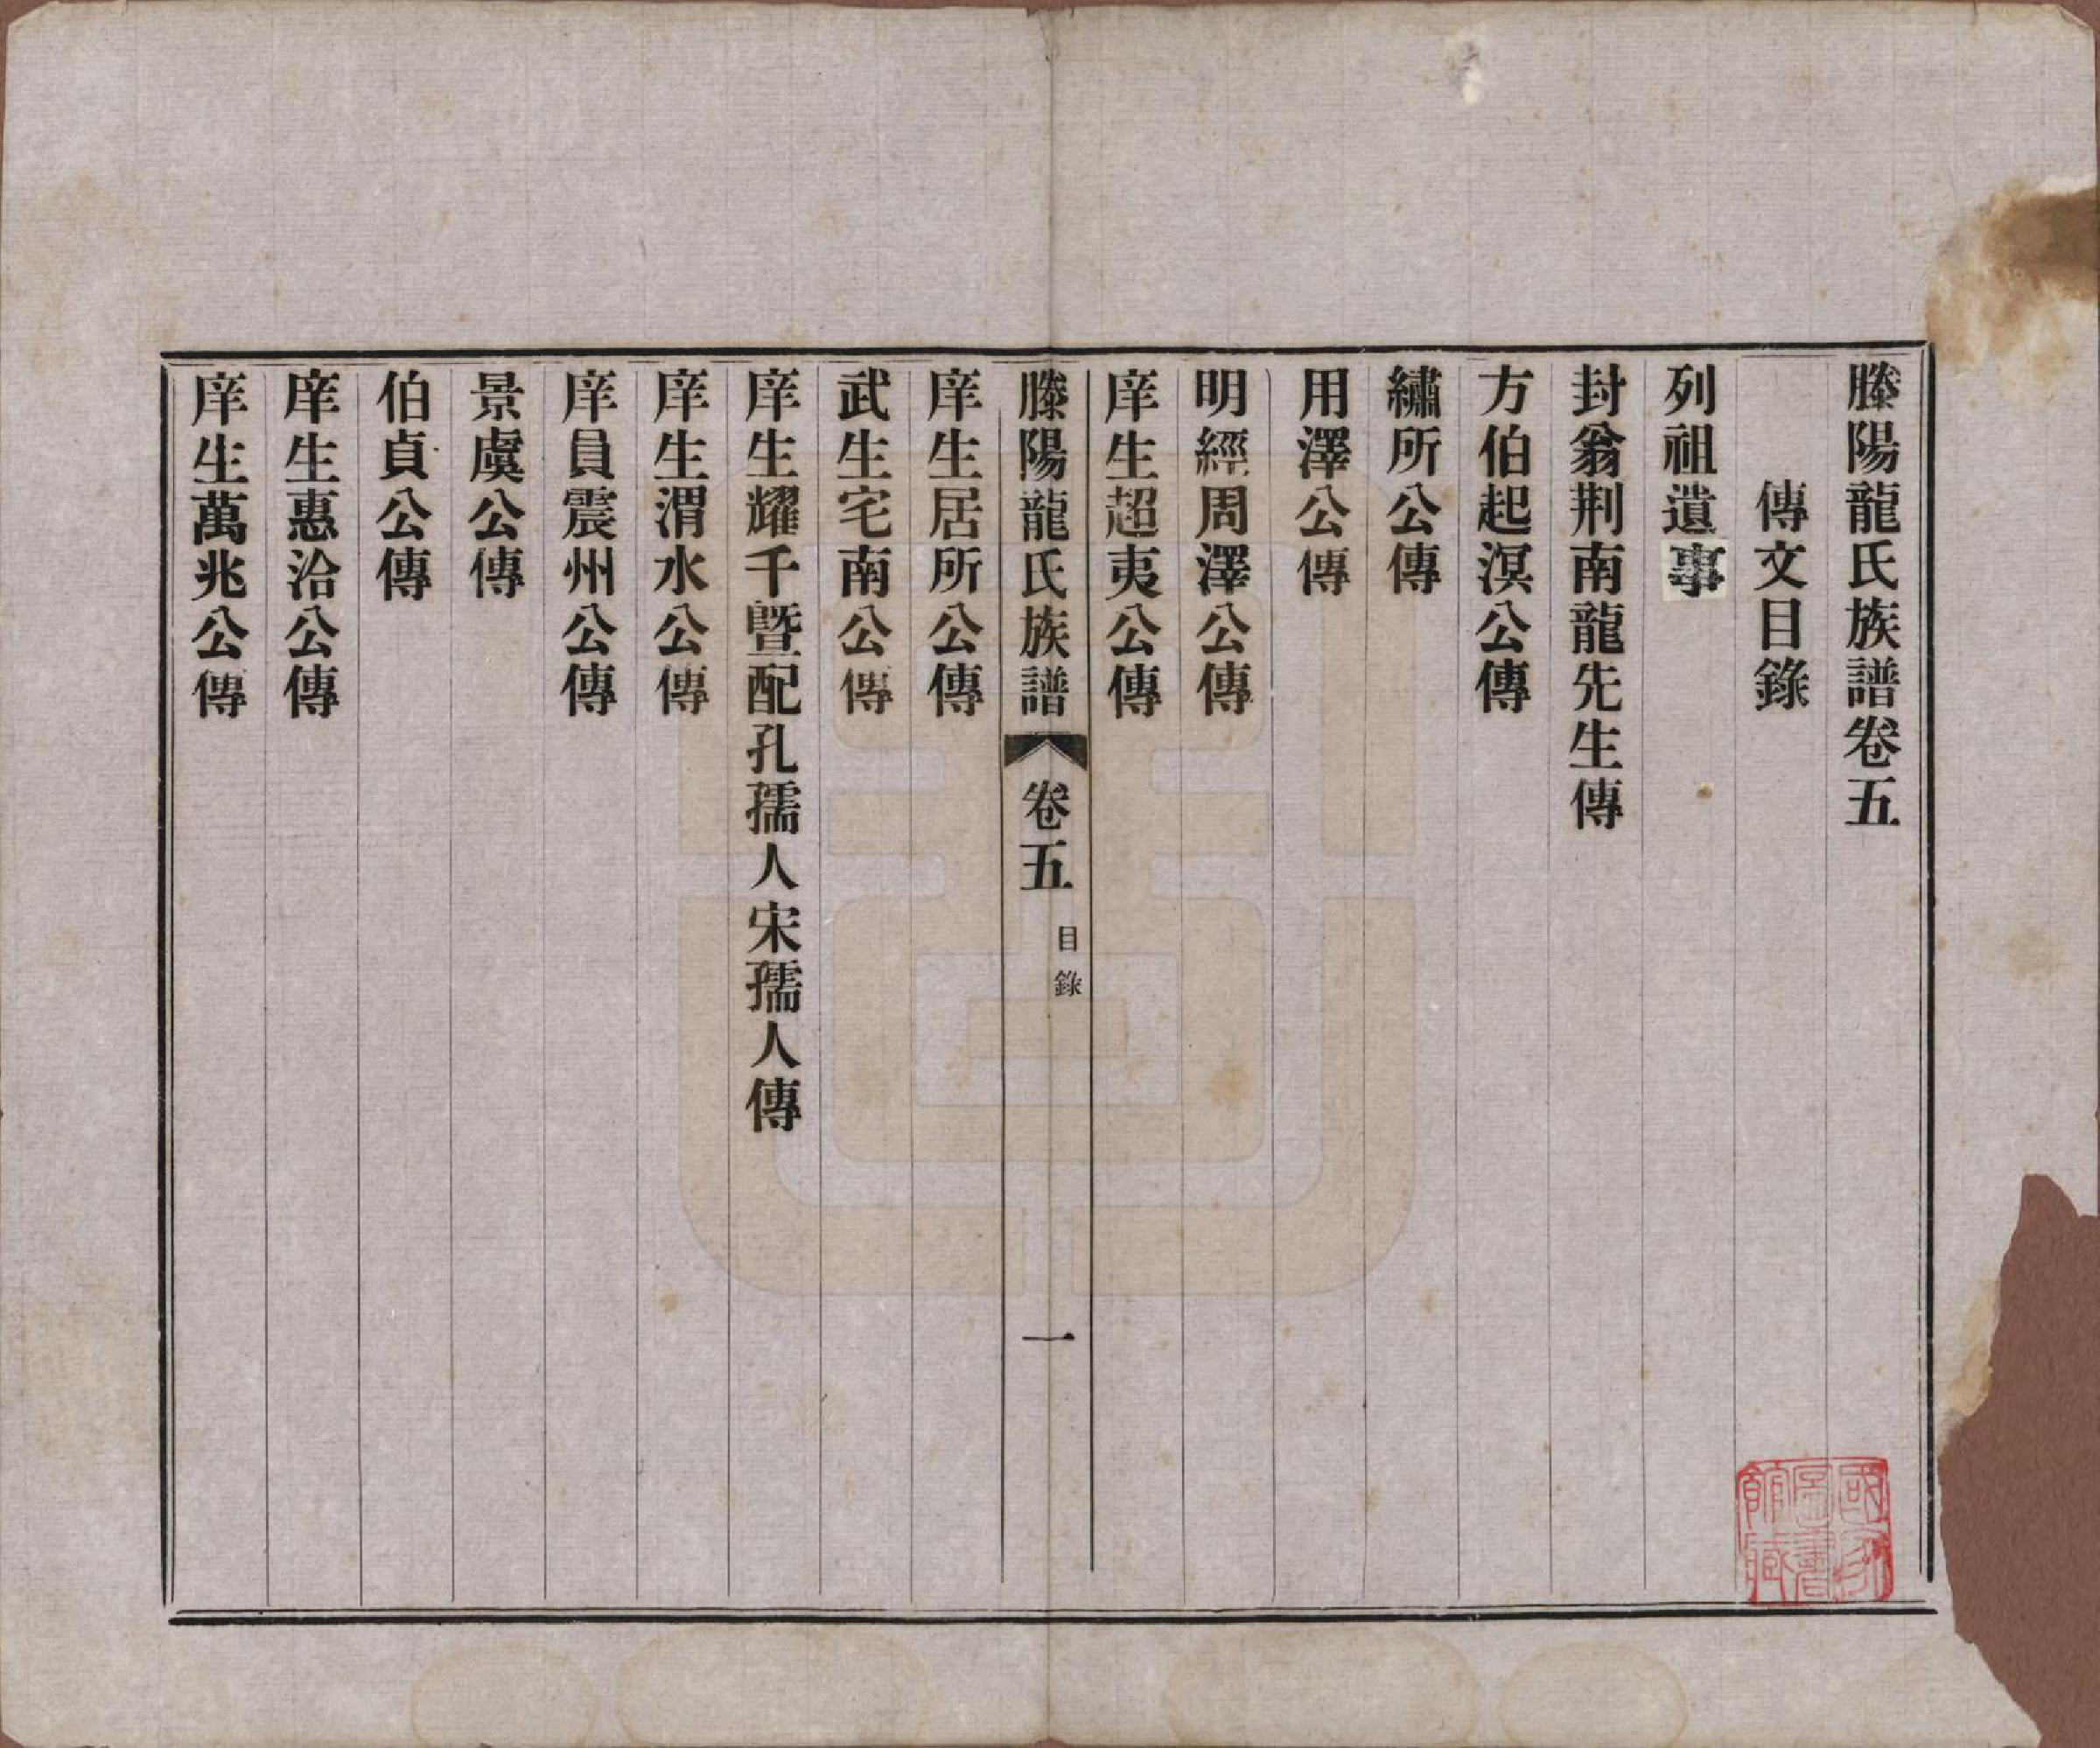 滕陽龍氏族譜卷五
傳文目錄
列祖遺事
封翁荆南龍先生傳
方伯起溟公傳
繡所公傳
用澤公傳
明經周澤公傳
庠生超夷公傳
滕陽龍氏族譜 卷五 目錄 一
庠生居所公傳
武生宅南公傳
庠生耀千暨配孔孺人宋孺人傳
庠生渭水公傳
庠員震州公傳
景虞公傳
伯貞公傳
庠生惠洽公傳
庠生萬兆公傳
國家圖書館藏